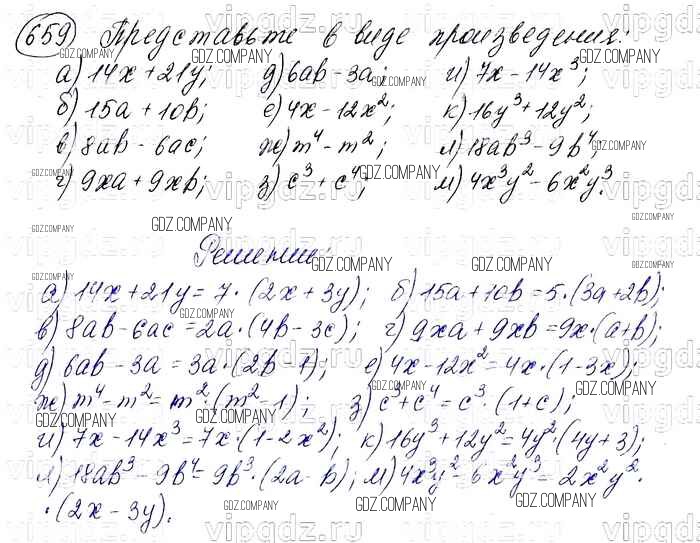 659 Представьте в виде произведения:
а) 14x + 21y; д) 6ab - 3a; и) 7x - 14x³;
б) 15a + 10b; е) 4x - 12x²; к) 16y³ + 12y²;
в) 8ab - 6ac; ж) m⁴ - m²; л) 18ab³ - 9b⁴;
г) 9xa + 9xb; з) c³ + c⁴; м) 4x³y² - 6x²y³.
Решение:
а) 14x + 21y = 7 · (2x + 3y); б) 15a + 10b = 5 · (3a + 2b);
в) 8ab - 6ac = 2a · (4b - 3c); г) 9xa + 9xb = 9x · (a + b);
д) 6ab - 3a = 3a · (2b - 1); е) 4x - 12x² = 4x · (1 - 3x);
ж) m⁴ - m² = m² · (m² - 1); з) c³ + c⁴ = c³ · (1 + c);
и) 7x - 14x³ = 7x · (1 - 2x²); к) 16y³ + 12y² = 4y² · (4y + 3);
л) 18ab³ - 9b⁴ = 9b³ · (2a - b); м) 4x³y² - 6x²y³ = 2x²y² ·
· (2x - 3y).
GDZ.COMPANY
vipgdz.ru